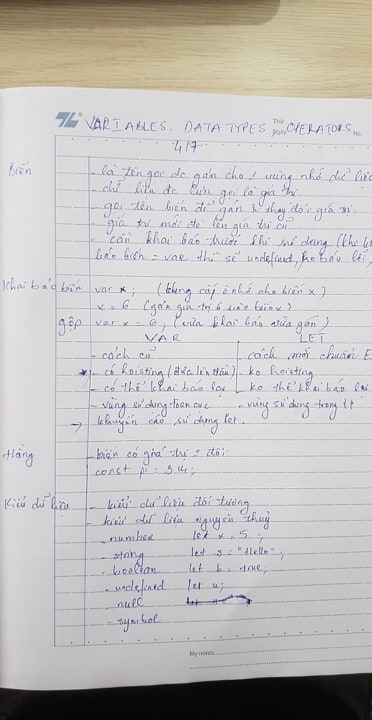 VARIABLES. DATA TYPES, OPERATORS
Thứ
Ngày
No.
4/7
Biến
- là tên gọi đc gán cho 1 vùng nhớ dữ liệu
- dữ liệu đc lưu gọi là giá trị
- gọi tên biến để gán & thay đổi giá trị
- giá trị mới đè lên giá trị cũ
- cần khai báo trước khi sử dụng (khi
báo biến = var thì sẽ undefined, ko báo lỗi
Khai báo biến var x; (cung cấp ô nhớ cho biến x)
x = 6 (gán giá trị 6 vào biến x)
gộp var x = 6, (vừa khai báo vừa gán)
VAR LET
- cách cũ cách mới chuẩn E
- có hoisting (đưa lên đầu) ko hoisting
- có thể khai báo lại ko thể khai báo lại
- vùng sử dụng toàn cục - vùng sử dụng trong { }
→ khuyến cáo sử dụng let.
Hằng - biến có giá trị đổi
const pi = 3.14;
Kiểu dữ liệu - kiểu dữ liệu đối tượng
- kiểu dữ liệu nguyên thuỷ
- number let x = 5;
- string let s = "Hello";
- boolean let b = true;
- undefined let u;
- null
- symbol
My notes: